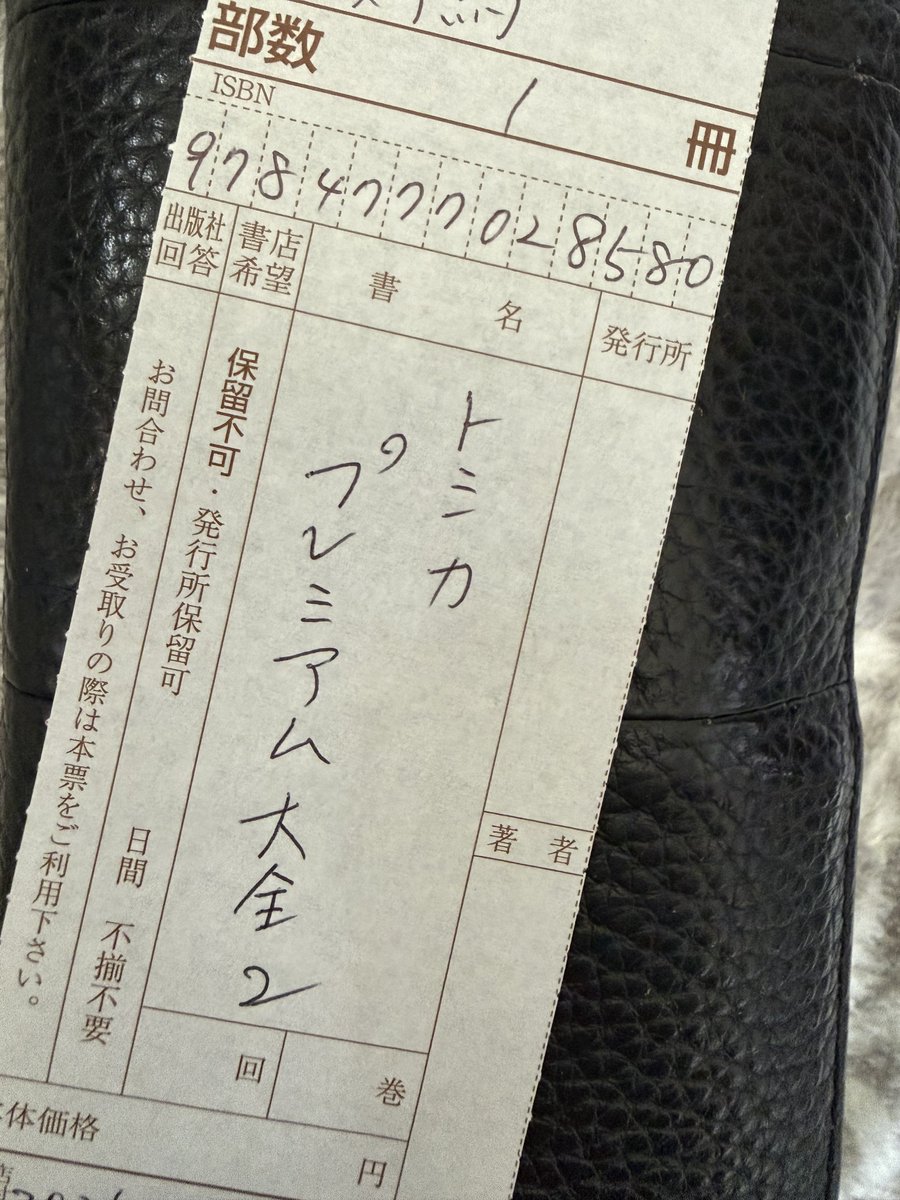 部数
1 冊
ISBN
9784777028580
発行所
書名
書店希望
出版社回答
トミカ
プレミアム大全2
保留不可・発行所保留可
お問合わせ、お受取りの際は本票をご利用下さい。
日間 不揃不要
著者
巻
回
本体価格
円